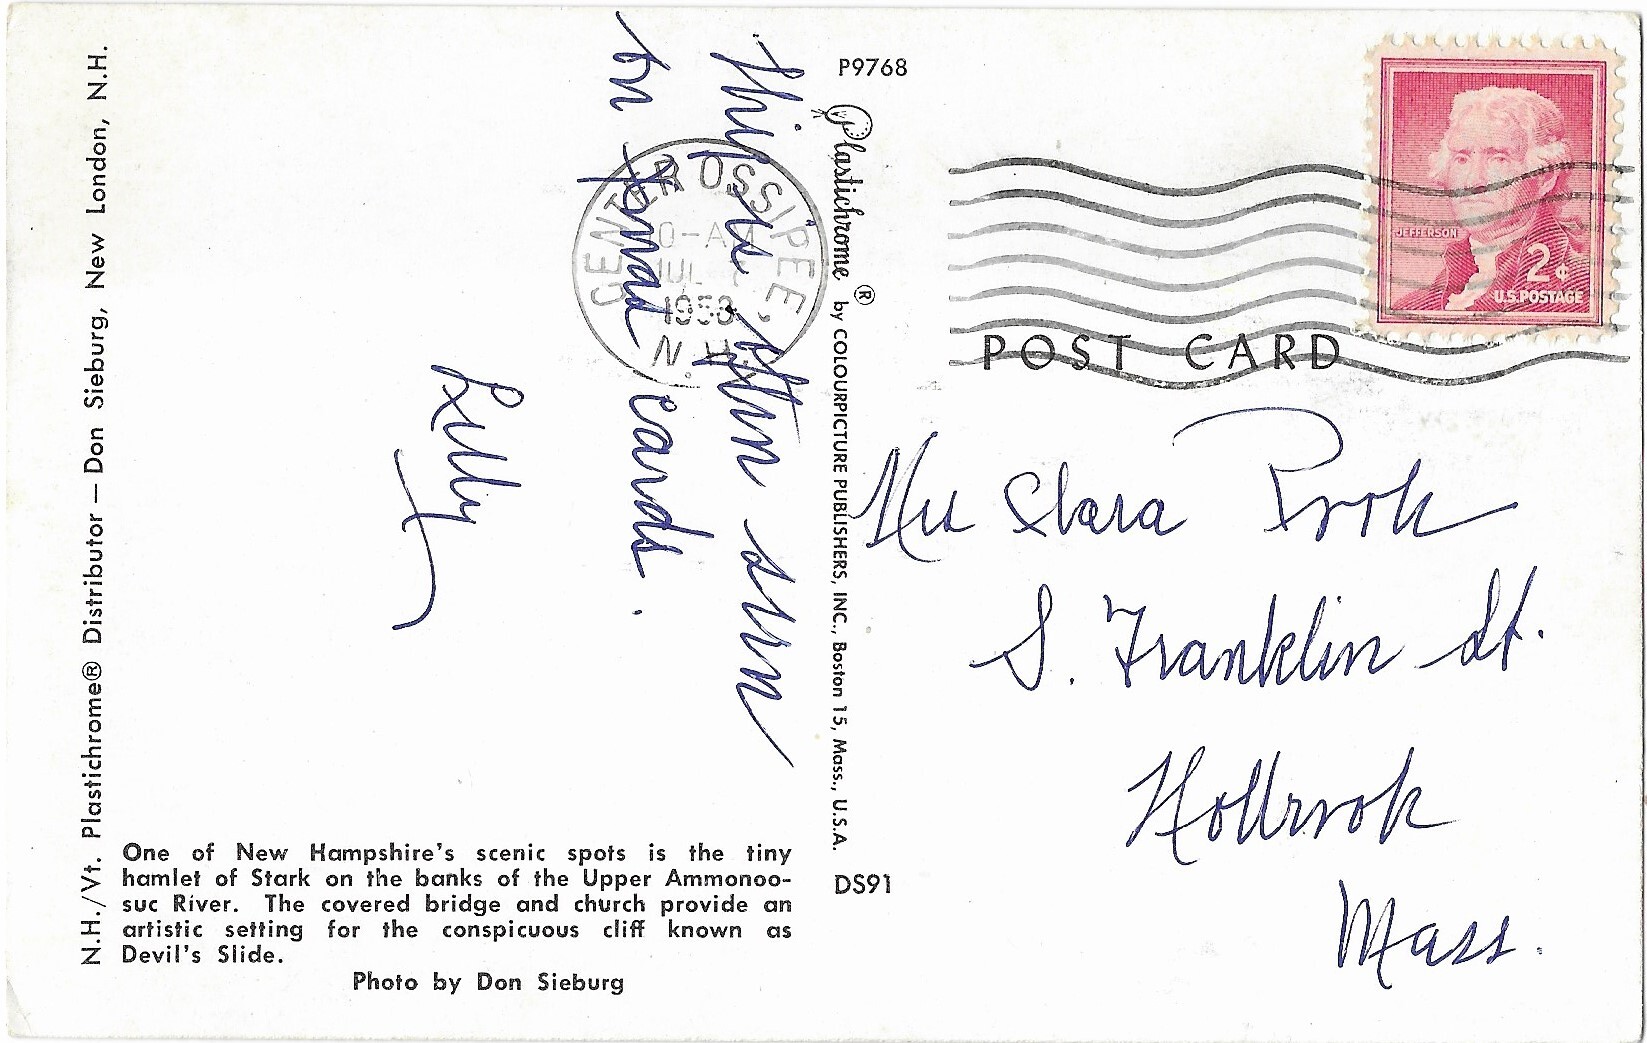 N.H./Vt. Plastichrome® Distributor — Don Sieburg, New London, N.H.
This is often seen
on Xmas cards.
Lilly
One of New Hampshire's scenic spots is the tiny
hamlet of Stark on the banks of the Upper Ammonoo-
suc River. The covered bridge and church provide an
artistic setting for the conspicuous cliff known as
Devil's Slide.
Photo by Don Sieburg
P9768
Plastichrome® by COLOURPICTURE PUBLISHERS, INC., Boston 15, Mass., U.S.A.
DS91
CENTER OSSIPEE,
-AM
JUL
N.H.
JEFFERSON
2¢
U.S. POSTAGE
POST CARD
Mrs Clara
S. Franklin St.
Holbrook
Mass.